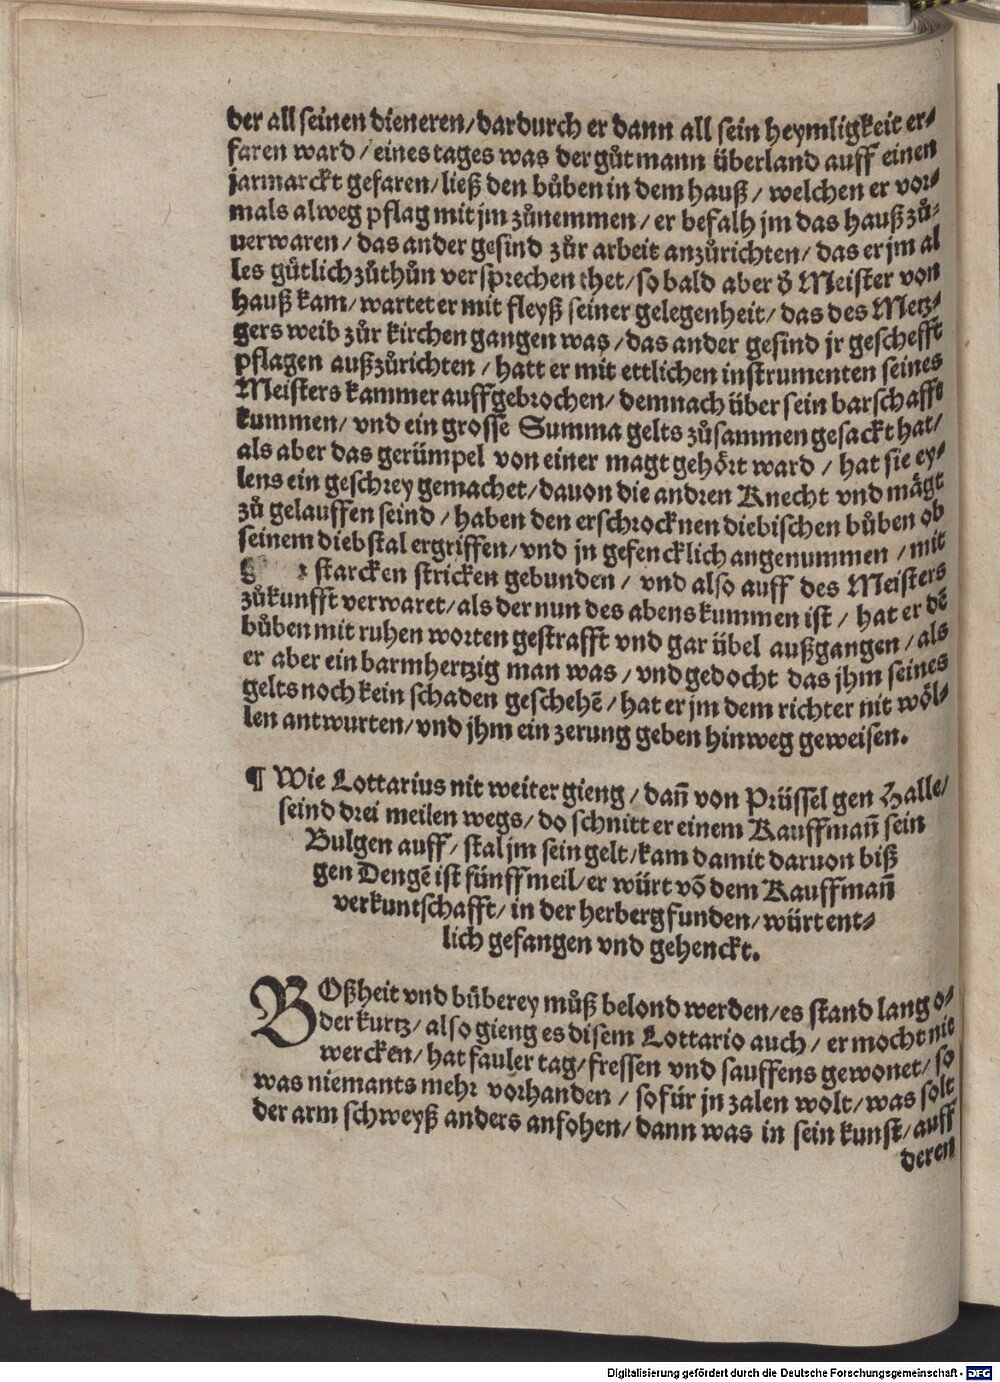 der all seinen dieneren/dardurch er dann all sein heymligkeit er⸗
faren ward/eines tages was der gůt mann überland auff einen
jarmarckt gefaren/ließ den bůben in dem hauß/welchen er vor⸗
mals alweg pflag mit jm zůnemmen/er befalh jm das hauß zů⸗
uerwaren/das ander gesind zůr arbeit anzůrichten/das er jm al
les gůtlich zůthůn versprechen thet/so bald aber d̕ Meister von
hauß kam/wartet er mit fleyß seiner gelegenheit/das des Metz⸗
gers weib zůr kirchen gangen was/das ander gesind jr geschefft
pflagen außzůrichten/hatt er mit ettlichen instrumenten seines
Meisters kammer auffgebrochen/demnach über sein barschafft
kummen/vnd ein grosse Summa gelts zůsammen gesackt hat/
als aber das gerümpel von einer magt gehört ward/hat sie ey⸗
lens ein geschrey gemachet/dauon die andren Knecht vnd mägt
zů gelauffen seind/haben den erschrocknen diebischen bůben ob
seinem diebstal ergriffen/vnd jn gefencklich angenummen/mit
starcken stricken gebunden/vnd also auff des Meisters
zůkunfft verwaret/als der nun des abens kummen ist/hat er dē
bůben mit ruhen worten gestrafft vnd gar übel außgangen/als
er aber ein barmhertzig man was/vnd gedocht das jhm seines
gelts noch kein schaden geschehē/hat er jm dem richter nit wöl⸗
len antwurten/vnd jhm ein zerung geben hinweg geweisen.
¶ Wie Lottarius nit weiter gieng/dañ von Prüssel gen Halle/
seind drei meilen wegs/do schnitt er einem Kauffmañ sein
Bulgen auff/stal jm sein gelt/kam damit daruon biß
gen Dengē ist fünff meil/er würt vō dem Kauffmañ
verkuntschafft/in der herberg funden/würt ent⸗
lich gefangen vnd gehenckt.
BOßheit vnd bůberey můß belond werden/es stand lang o⸗
der kurtz/also gieng es disem Lottario auch/er mocht nit
wercken/hat fauler tag/fressen vnd sauffens gewonet/so
was niemants mehr vorhanden/so für jn zalen wolt/was solt
der arm schweyß anders anfohen/dann was in sein kunst/auff
deren
Digitalisierung gefördert durch die Deutsche Forschungsgemeinschaft - DFG